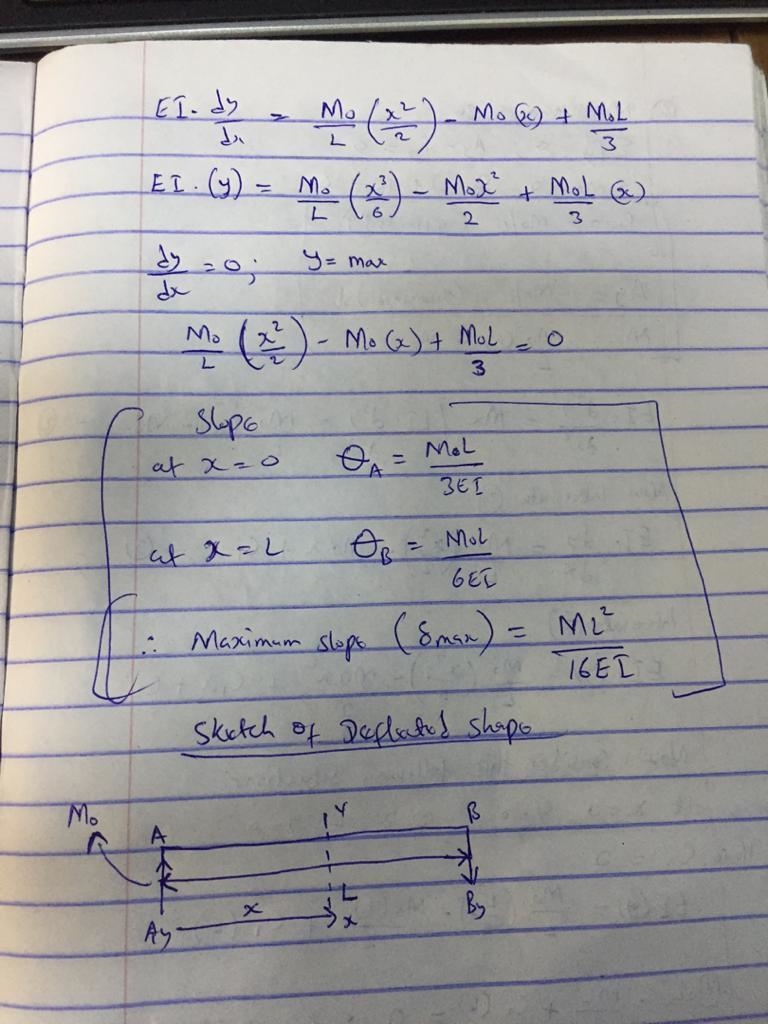 EI. dy/dx = M₀/L (x²/2) - M₀(x) + M₀L/3
EI. (y) = M₀/L (x³/6) - M₀x²/2 + M₀L/3 (x)
dy/dx = 0; y = max
M₀/L (x²/2) - M₀(x) + M₀L/3 = 0
Slope
at x = 0 θ_A = M₀L/3EI
at x = L θ_B = M₀L/6EI
∴ Maximum slope (δmax) = ML²/16EI
Sketch of Deflected Shape
M₀ A Y B
L
Ay x x By